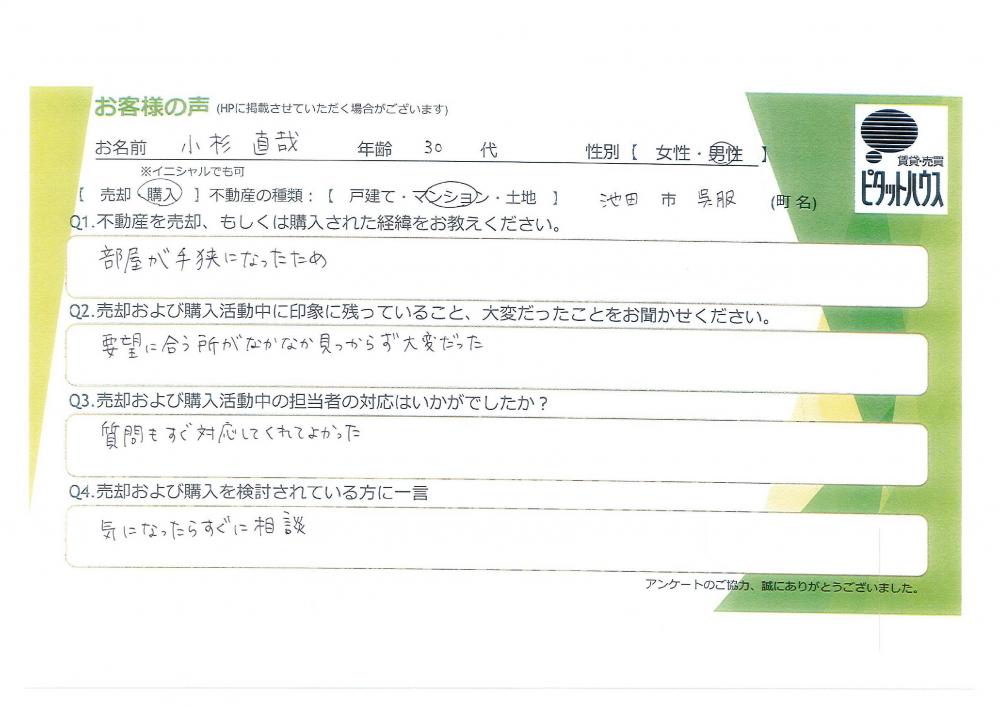 お客様の声 (HPに掲載させていただく場合がございます)
お名前 小杉 直哉 年齢 30 代 性別【 女性・男性 】
※イニシャルでも可
賃貸・売買
ピタットハウス
【 売却・購入 】不動産の種類：【 戸建て・マンション・土地 】 池田 市 呉服 (町名)
Q1.不動産を売却、もしくは購入された経緯をお教えください。
部屋が手狭になったため
Q2.売却および購入活動中に印象に残っていること、大変だったことをお聞かせください。
要望に合う所がなかなか見つからず大変だった
Q3.売却および購入活動中の担当者の対応はいかがでしたか？
質問もすぐ対応してくれてよかった
Q4.売却および購入を検討されている方に一言
気になったらすぐに相談
アンケートのご協力、誠にありがとうございました。